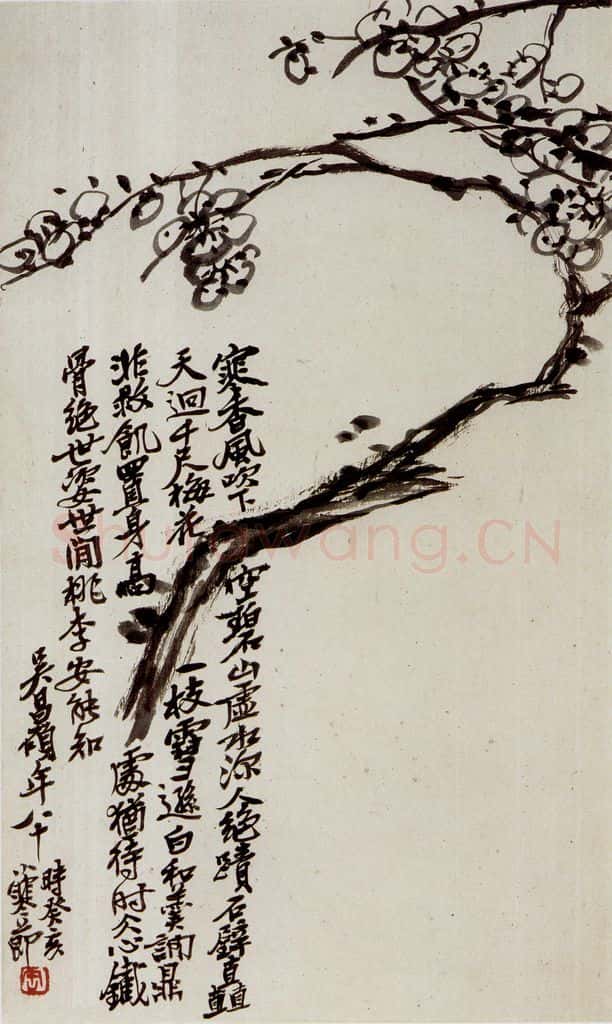 寒香風吹下空碧山虛水深人絕蹟石壁直矗
天迴千尺梅花一枝雪遜白和羹調鼎
非救飢置身高處猶待時仌心鐵
骨絕世姿世間桃李安能知
吳昌碩年八十
時癸亥
小寒節